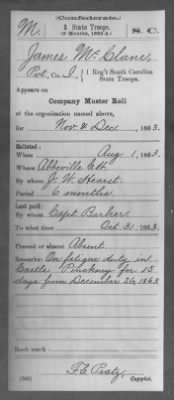 (Confederate.)
M. 1 State Troops. S. C.
(6 Months, 1863-4.)
James McClane,
Pvt., Co. I, 1 Reg't South Carolina
State Troops.
Appears on
Company Muster Roll
of the organization named above,
for Nov & Dec, 1863.
Enlisted:
When Aug 1, 1863.
Where Abbeville C.H.
By whom J. W. Hearst.
Period 6 months.
Last paid:
By whom Capt. Barker.
To what time Oct. 31, 1863.
Present or absent Absent
Remarks: On fatigue duty in
Castle Pinckney for 15
days from December 26, 1863
Book mark:
(642)
Copyist.